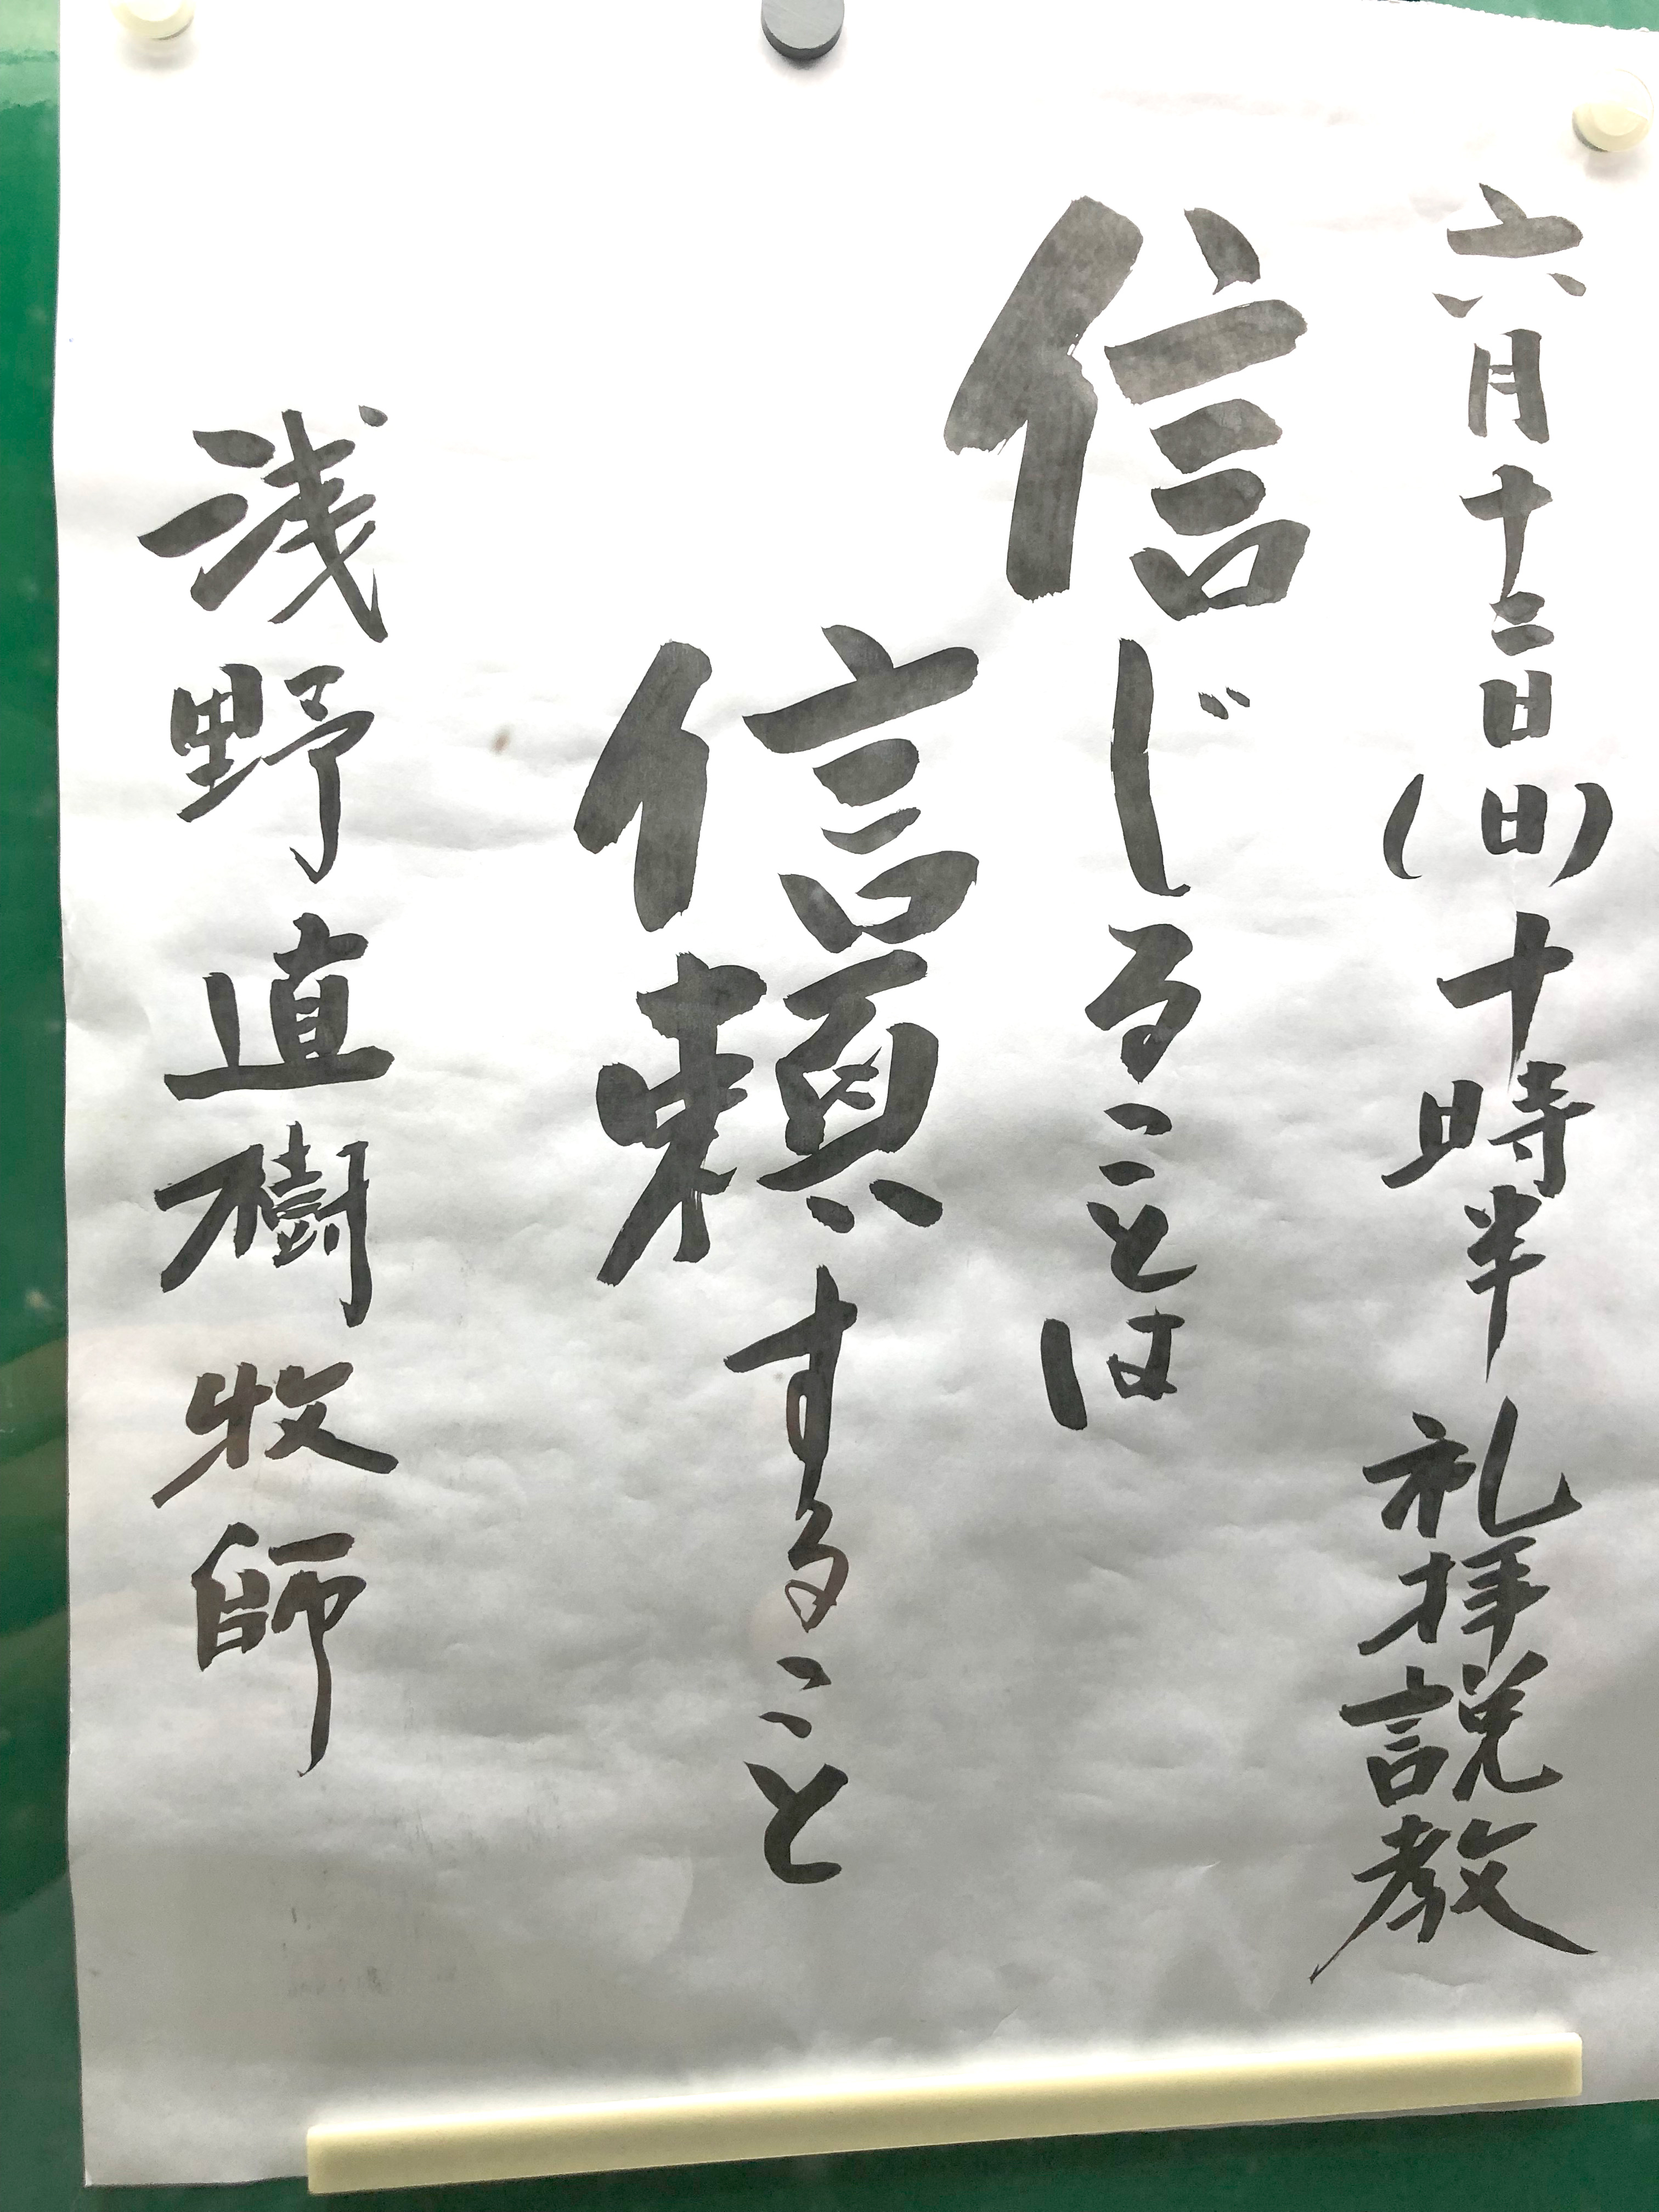 六月十三日(日)十時半 礼拝説教
信じることは
信頼すること
浅野直樹牧師